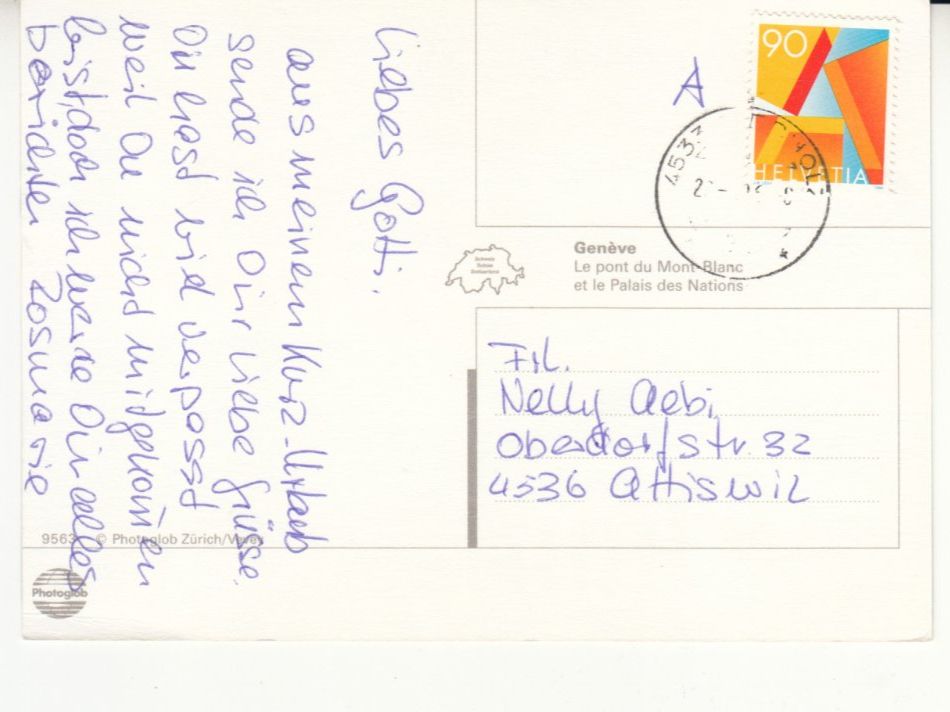 Liebes Gotti.
aus meinem Kurz-Urlaub
sende ich Dir liebe Grüsse.
Du hast viel verpasst
weil Du nicht mitgekom̄en
bist, doch ich werde Dir alles
berichten Rosmarie
90
HELVETIA
A
4533
Genève
Le pont du Mont-Blanc
et le Palais des Nations
Schweiz
Suisse
Switzerland
Frl.
Nelly Aebi
Oberdorfstr. 32
4536 Attiswil
9563 © Photoglob Zürich/Vevey
Photoglob